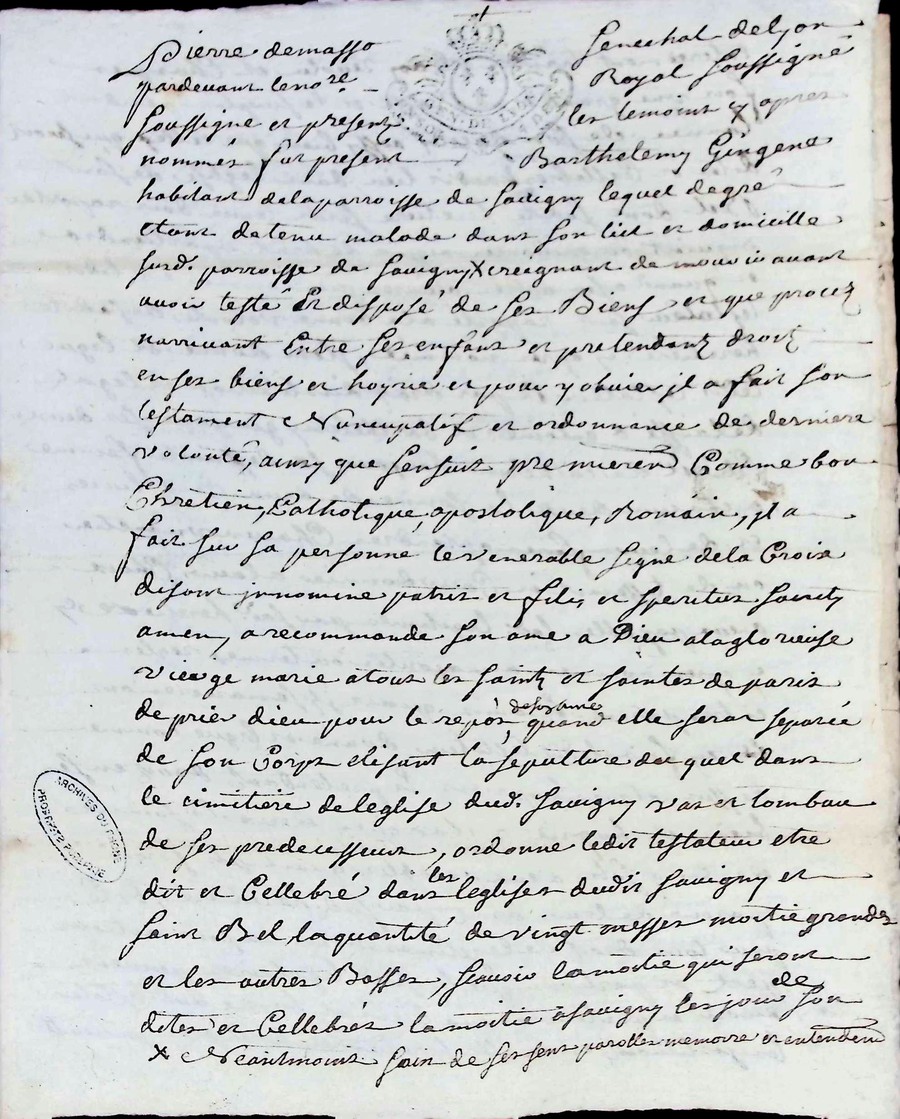 +
Pierre demasso Senechal de Lyon
pardevant le no.re Royal Soussigné
Soussigne et presentz les temoins cy apres
nommés fut present Barthelemy Gingene
habitant delaparroisse de Savigny lequel degré
etant detenu malade dans son lict et domicille
surd. parroisse de Savigny X creignant de mourir avant
avoir testé Et disposé de ses Biens et que procez
narrivant Entre ses enfans et pretendantz droitz
en ses biens et hoyrie et pour y obvier jl a fait son
testament Nuncupatif et ordonnance de derniere
volonté, ainsy que sensuit premieren Comme bon
Chrêtien, Catholique, apostolique, Romain, jl a
fait sur sa personne le venerable signe dela Croix
disant jn nomine patris et filii et speritus sancty
amen, a recommande son ame a Dieu ala glorieuse
vierge marie a tous les saintz et saintes de paris
de prier dieu pour le repos de son ame, quand elle serat separée
de son Corps elisant la sepulture duquel dans
le cimitiére de leglise dud. Savigny vas et tombau
de ses predecesseurs, ordonne ledit testateur etre
dit et Cellebré dans les leglises dudit Savigny et
saint Bel, la quantité de vingt messes moitie grandes
et les autres Basses, scavoir la moitie qui seront
dites et Cellebrés la moitie a Savigny les jour de son
X Neantmoins sain de ses sens parolles memoire et entendem
ARCHIVES DU RHONE